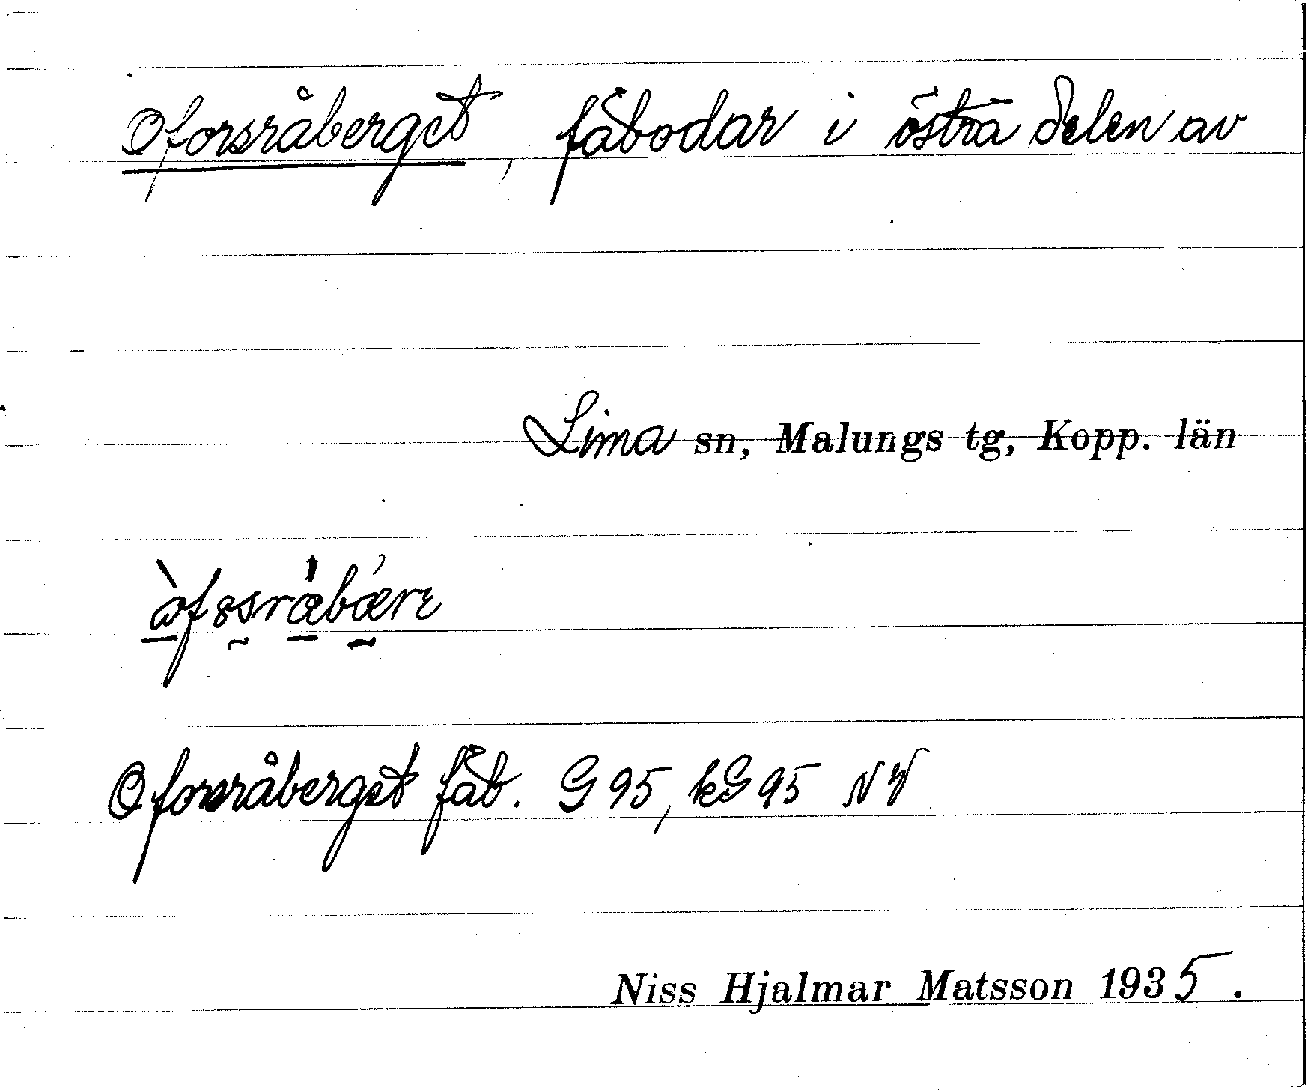 Oforsråberget, fäbodar i östra delen av
Lima sn, Malungs tg, Kopp. län
Oforsråberget fäb. G 95, kG 95 NV
Niss Hjalmar Matsson 1935.